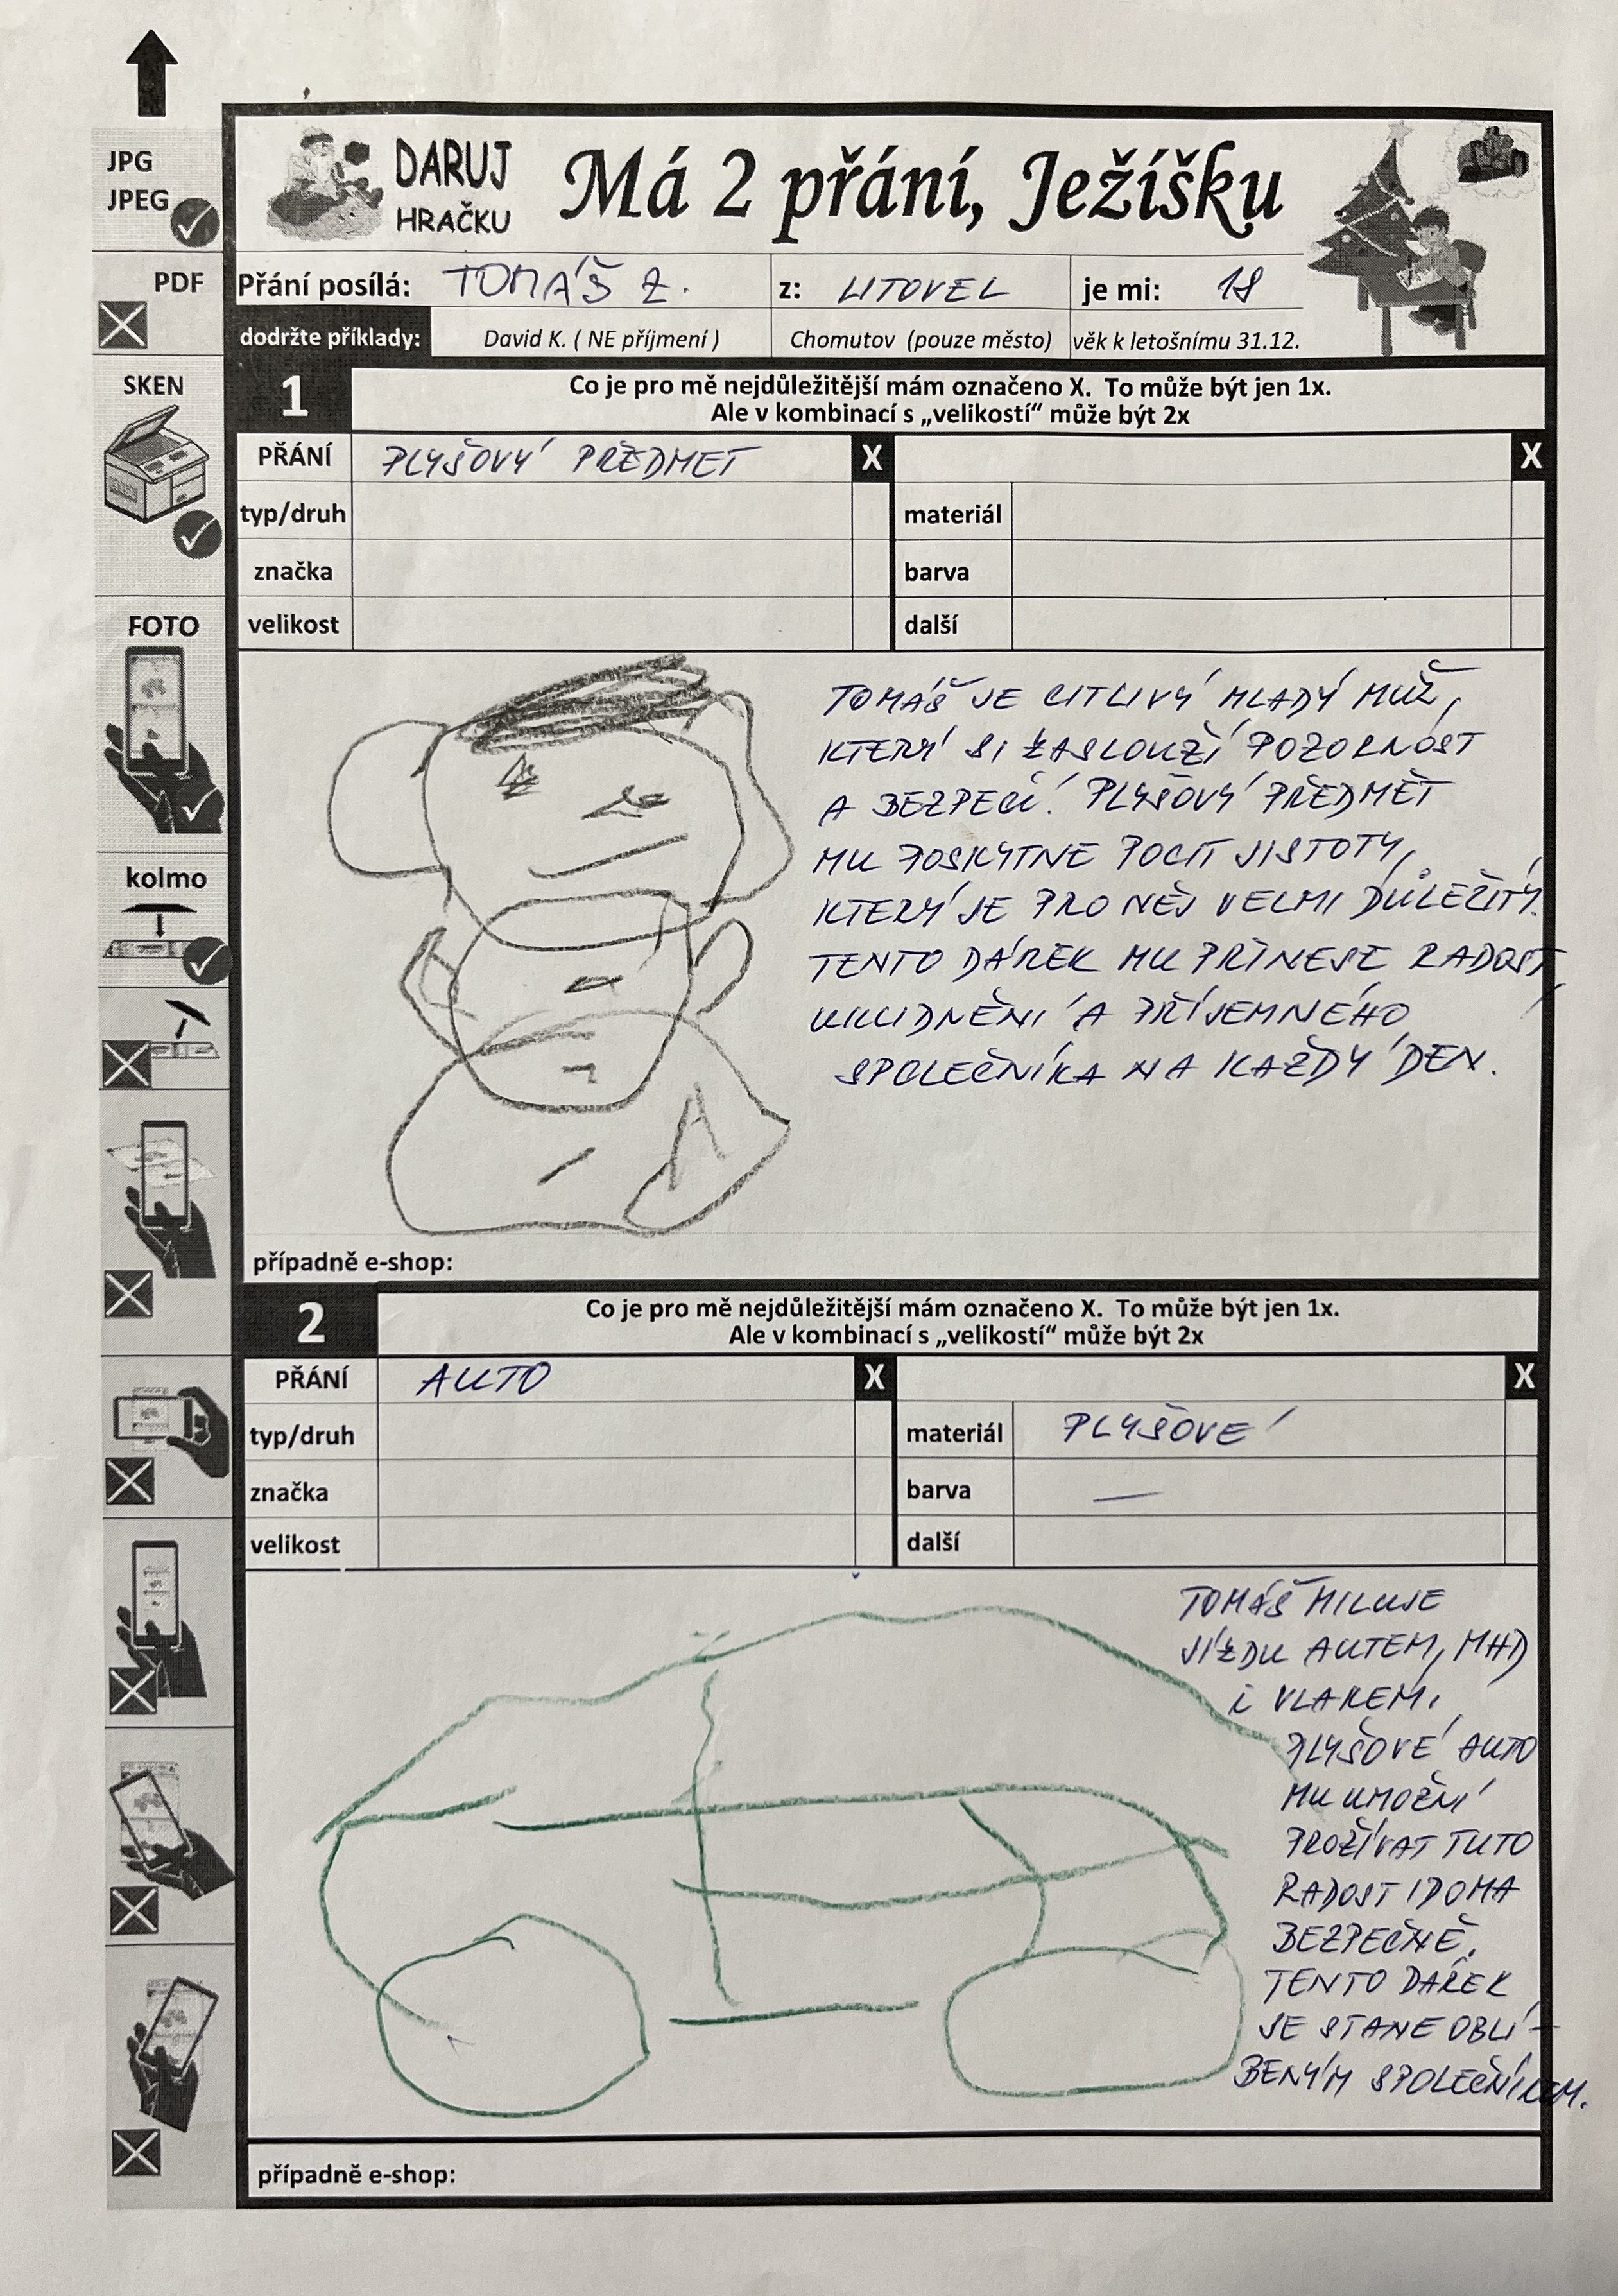 JPG
JPEG
PDF
SKEN
FOTO
kolmo
DARUJ
HRAČKU
Má 2 přání, Ježíšku
Přání posílá: TOMÁŠ Z. z: LITOVEL je mi: 18
dodržte příklady: David K. ( NE příjmení ) Chomutov (pouze město) věk k letošnímu 31.12.
1
Co je pro mě nejdůležitější mám označeno X. To může být jen 1x.
Ale v kombinací s „velikostí“ může být 2x
PŘÁNÍ PLYŠOVÝ PŘEDMET X X
typ/druh materiál
značka barva
velikost další
TOMÁŠ JE CITLIVÝ MLADÝ MUŽ,
KTERÝ SI ZASLOUŽÍ POZORNOST
A BEZPECÍ. PLYŠOVÝ PŘEDMĚT
MU POSKYTNE POCIT JISTOTY,
KTERÝ JE PRO NĚJ VELMI DŮLEŽITÝ.
TENTO DÁREK MU PŘINESE RADOST,
UKLIDNĚNÍ A PŘÍJEMNÉHO
SPOLEČNÍKA NA KAŽDÝ DEN.
případně e-shop:
2
Co je pro mě nejdůležitější mám označeno X. To může být jen 1x.
Ale v kombinací s „velikostí“ může být 2x
PŘÁNÍ AUTO X X
typ/druh materiál PLYŠOVÉ
značka barva —
velikost další
TOMÁŠ MILUJE
JÍZDU AUTEM, MHD
i VLAKEM.
PLYŠOVÉ AUTO
MU UMOŽNÍ
PROŽÍVAT TUTO
RADOST I DOMA
BEZPEČNĚ.
TENTO DÁREK
SE STANE OBLÍ-
BENÝM SPOLEČNÍKEM.
případně e-shop: